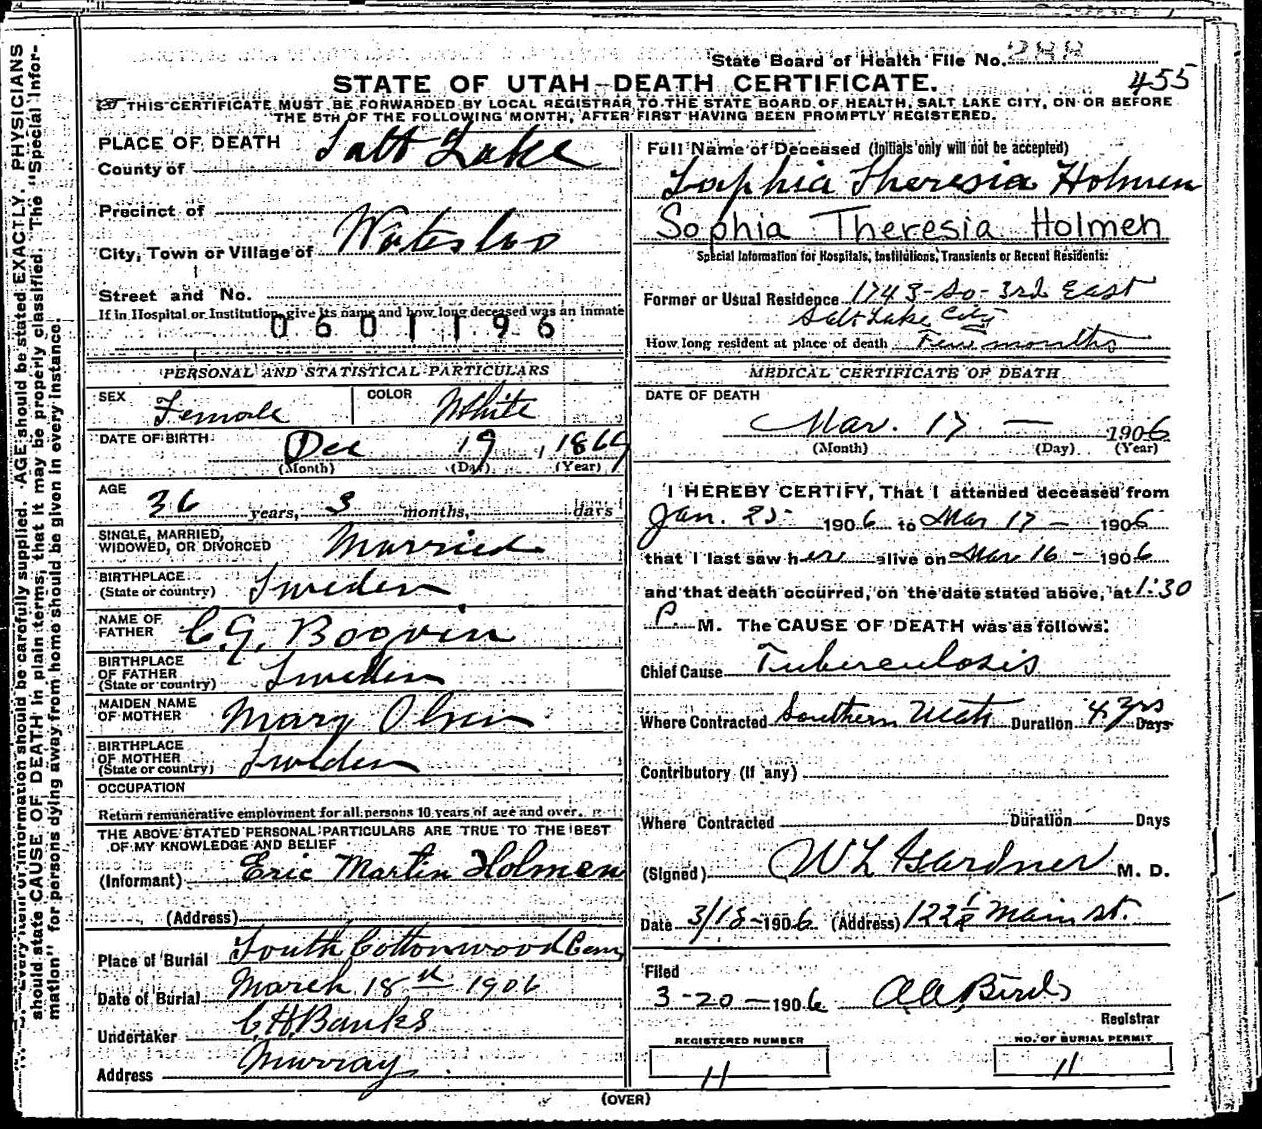 State Board of Health File No. 288
STATE OF UTAH—DEATH CERTIFICATE.
455
THIS CERTIFICATE MUST BE FORWARDED BY LOCAL REGISTRAR TO THE STATE BOARD OF HEALTH, SALT LAKE CITY, ON OR BEFORE
THE 5TH OF THE FOLLOWING MONTH, AFTER FIRST HAVING BEEN PROMPTLY REGISTERED.
PLACE OF DEATH
County of Salt Lake
Precinct of
City, Town or Village of Waterloo
Street and No.
If in Hospital or Institution, give its name and how long deceased was an inmate
0601196
PERSONAL AND STATISTICAL PARTICULARS
SEX Female COLOR White
DATE OF BIRTH Dec 19, 1869
(Month) (Day) (Year)
AGE 36 years, 3 months, days
SINGLE, MARRIED,
WIDOWED, OR DIVORCED Married
BIRTHPLACE
(State or country) Sweden
NAME OF
FATHER C.G. Boqvin
BIRTHPLACE
OF FATHER
(State or country) Sweden
MAIDEN NAME
OF MOTHER Mary Olsen
BIRTHPLACE
OF MOTHER
(State or country) Sweden
OCCUPATION
Return remunerative employment for all persons 10 years of age and over.
THE ABOVE STATED PERSONAL PARTICULARS ARE TRUE TO THE BEST
OF MY KNOWLEDGE AND BELIEF
(Informant) Eric Martin Holmen
(Address)
Place of Burial South Cottonwood Cem
Date of Burial March 18th 1906
Undertaker C H Banks
Address Murray
Full Name of Deceased (Initials only will not be accepted)
Sophia Theresia Holmen
Sophia Theresia Holmen
Special Information for Hospitals, Institutions, Transients or Recent Residents:
Former or Usual Residence 1743-So-3rd East
Salt Lake City
How long resident at place of death Few months
MEDICAL CERTIFICATE OF DEATH
DATE OF DEATH
Mar. 17 — 1906
(Month) (Day) (Year)
I HEREBY CERTIFY, That I attended deceased from
Jan. 25 1906 to Mar 17 — 1906
that I last saw her alive on Mar 16 — 1906
and that death occurred, on the date stated above, at 1:30
P. M. The CAUSE OF DEATH was as follows:
Chief Cause Tuberculosis
Where Contracted Southern Utah Duration 4 yrs Days
Contributory (If any)
Where Contracted Duration Days
(Signed) W L Gardner M. D.
Date 3/18-1906 (Address) 122 Main st.
Filed
3-20-1906 A A Bird
Registrar
REGISTERED NUMBER
11
NO. OF BURIAL PERMIT
11
(OVER)
Every item of information should be carefully supplied. AGE should be stated EXACTLY. PHYSICIANS
should state CAUSE OF DEATH in plain terms, that it may be properly classified. The "Special Infor-
mation" for persons dying away from home should be given in every instance.